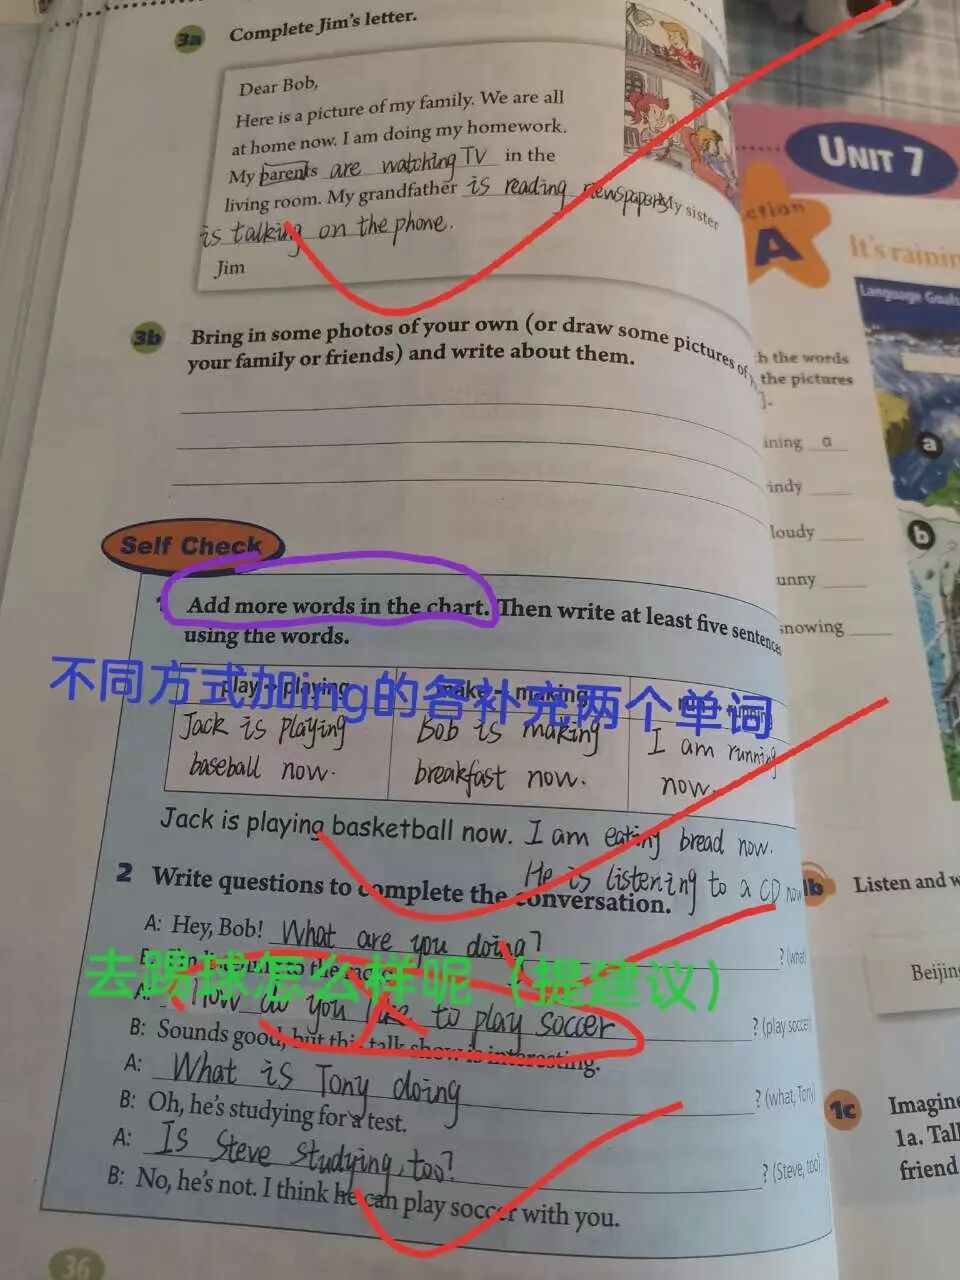 3a Complete Jim's letter.
Dear Bob,
Here is a picture of my family. We are all
at home now. I am doing my homework.
My parents are watching TV in the
living room. My grandfather is reading newspapers. My sister
is talking on the phone.
Jim
3b Bring in some photos of your own (or draw some pictures of
your family or friends) and write about them.
Self Check
1 Add more words in the chart. Then write at least five sentences
using the words.
不同方式加ing的各补充两个单词
play → playing make → making running
Jack is playing
baseball now.
Bob is making
breakfast now.
I am running
now.
Jack is playing basketball now. I am eating bread now.
He is listening to a CD now
2 Write questions to complete the conversation.
A: Hey, Bob! What are you doing? ? (what)
去踢球怎么样呢（提建议）
A: How do you like to play soccer ? (play soccer)
B: Sounds good, but this talk show is interesting.
A: What is Tony doing ? (what, Tony)
B: Oh, he's studying for a test.
A: Is Steve studying, too? ? (Steve, too)
B: No, he's not. I think he can play soccer with you.
36
UNIT 7
ction
A
It's rainin
Language Goals
h the words
the pictures
].
ining a
indy
loudy
unny
snowing
a
b
1b Listen and w
Beijin
1c Imagine
1a. Tal
friend